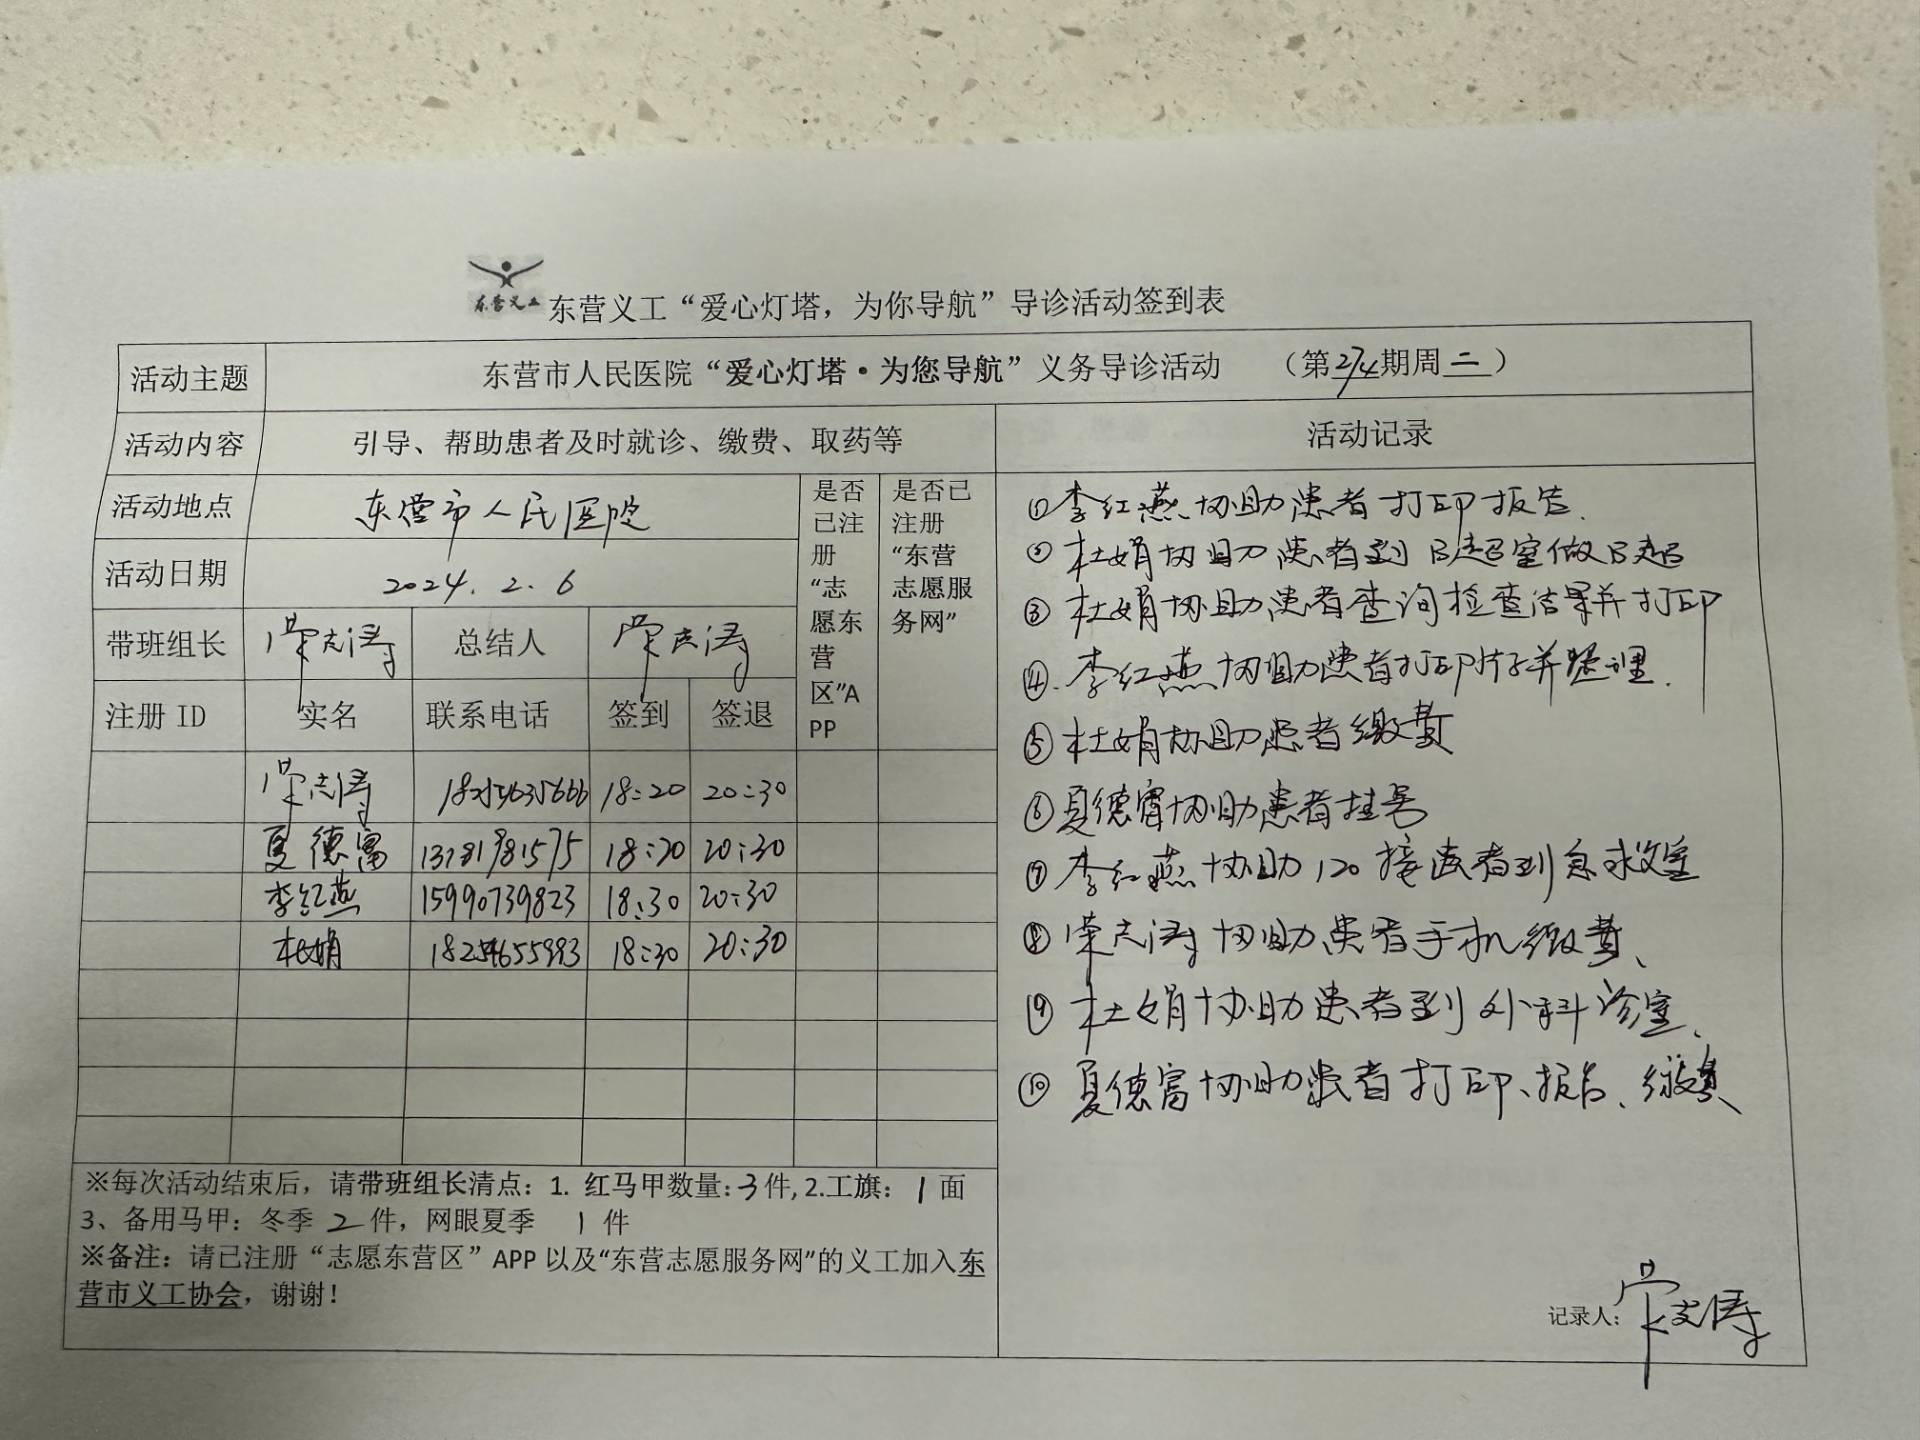 东营义工
东营义工“爱心灯塔，为你导航”导诊活动签到表
活动主题 东营市人民医院“爱心灯塔·为您导航”义务导诊活动 （第274期周二）
活动内容 引导、帮助患者及时就诊、缴费、取药等 活动记录
活动地点 东营市人民医院
活动日期 2024.2.6
带班组长 荣志涛 总结人 荣志涛
注册 ID 实名 联系电话 签到 签退
是否
已注
册
“志
愿东
营
区”A
PP
是否已
注册
“东营
志愿服
务网”
荣志涛 18254635666 18:20 20:30
夏德富 18:20 20:30
李红燕 15990739823 18:30 20:30
杜娟 18254655993 18:30 20:30
※每次活动结束后，请带班组长清点：1. 红马甲数量：3件, 2.工旗：1面
3、备用马甲：冬季 2 件，网眼夏季 1 件
※备注：请已注册“志愿东营区”APP 以及“东营志愿服务网”的义工加入东
营市义工协会，谢谢！
①李红燕协助患者打印报告.
②杜娟协助患者到B超室做B超
③杜娟协助患者查询检查结果并打印
④.李红燕协助患者打印片子并整理.
⑤杜娟协助患者缴费
⑥夏德富协助患者挂号
⑦李红燕协助120接患者到急救室
⑧荣志涛协助患者手机缴费、
⑨杜娟协助患者到外科诊室、
⑩夏德富协助患者打印、报告、缴费、
记录人：荣志涛